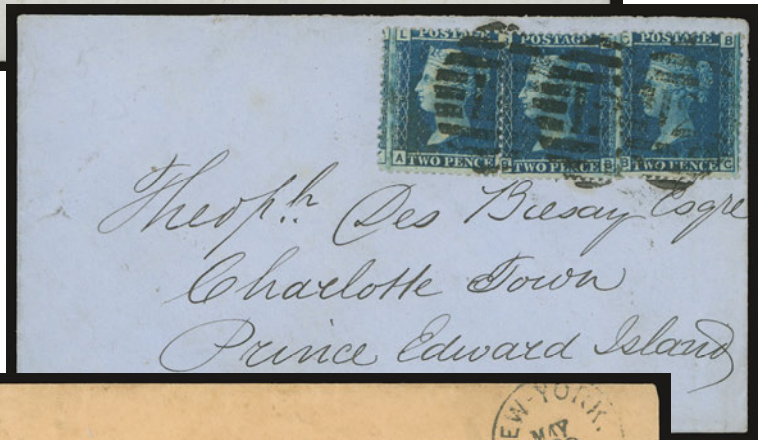 L POSTAGE POSTAGE POSTAGE B
A TWO PENCE B TWO PENCE B B TWO PENCE C
Theoph. Des Brisay Esqre
Charlotte Town
Prince Edward Island
EW-YORK.
MAY